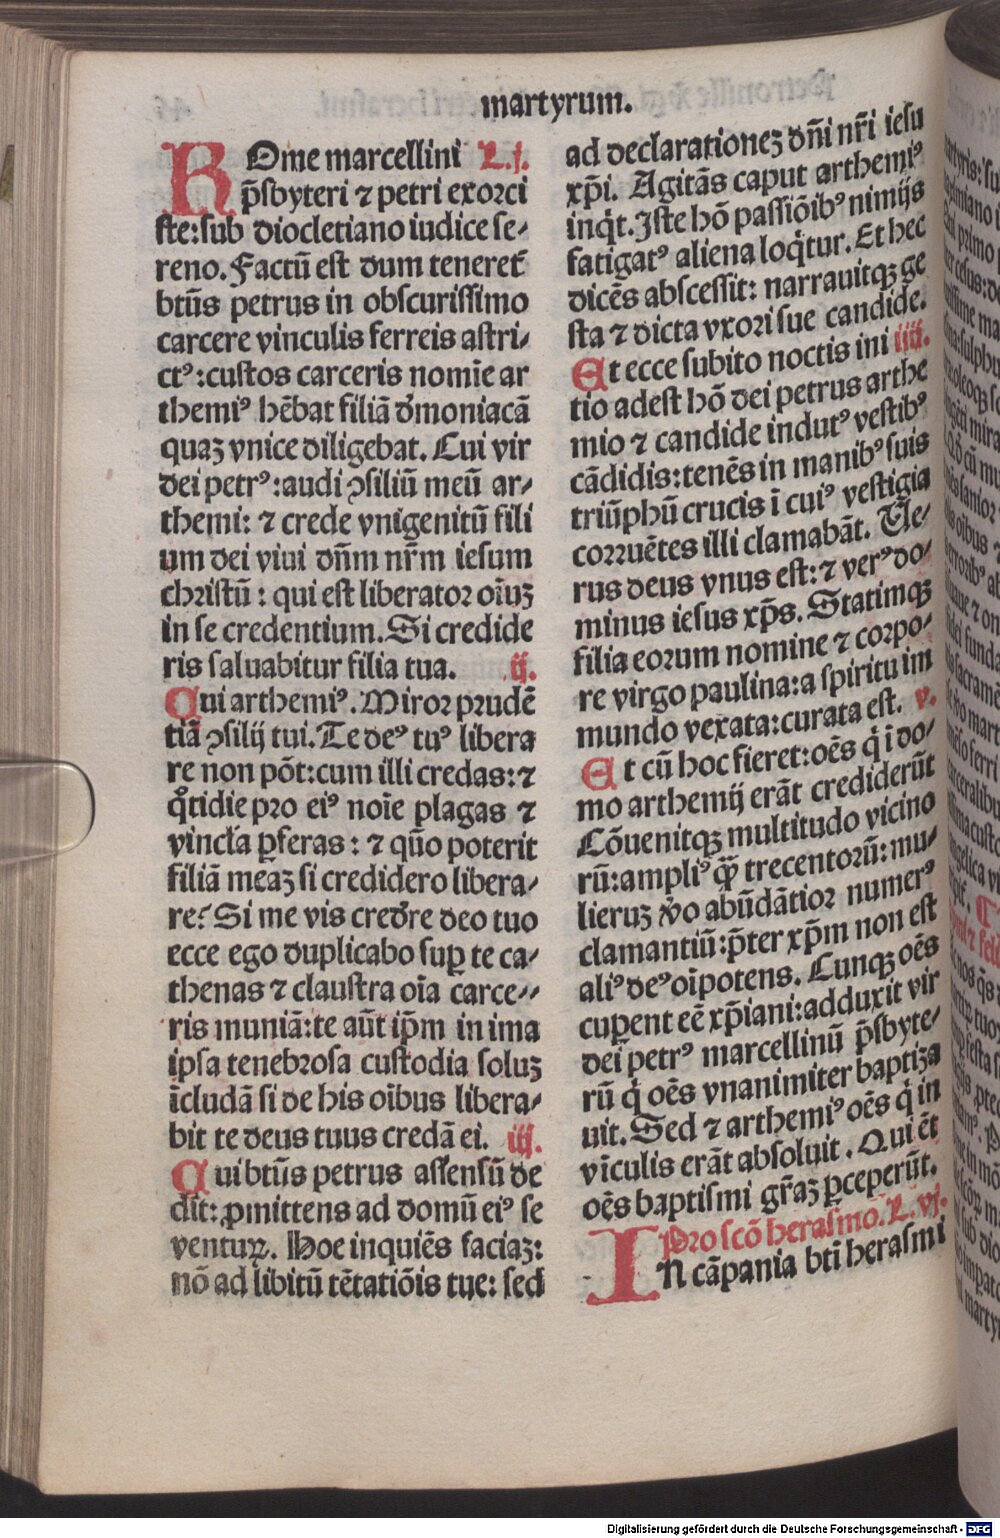 martyrum.
ROme marcellini L.j.
p̄sbyteri ⁊ petri exorci
ste:sub diocletiano iudice se⸗
reno. Factū est dum teneret᷑
btūs petrus in obscurissimo
carcere vinculis ferreis astri⸗
ctꝰ:custos carceris nomīe ar
themiꝰ hēbat filiā dꝰmoniacā
quaꝫ vnice diligebat. Cui vir
dei petrꝰ:audi ꝯsiliū meū ar⸗
themi: ⁊ crede vnigenitū fili
um dei viui dn̄m nr̄m iesum
christū: qui est liberator oīuꝫ
in se credentium. Si credide
ris saluabitur filia tua. ij.
Cui arthemiꝰ. Miror prudē
tiā ꝯsilij tui. Te deꝰ tuꝰ libera
re non pōt:cum illi credas: ⁊
qͦtidie pro eiꝰ noīe plagas ⁊
vincl̄a ꝑferas: ⁊ quō poterit
filiā meaꝫ si credidero libera⸗
re? Si me vis cred̄re deo tuo
ecce ego duplicabo suꝑ te ca⸗
thenas ⁊ claustra oīa carce⸗
ris muniā:te aūt ip̄m in ima
ipsa tenebrosa custodia soluꝫ
īcludā si de his oībus libera⸗
bit te deus tuus credā ei. iij.
Cui btūs petrus assensū de
dit: ꝓmittens ad domū eiꝰ se
venturꝝ. Hoc inquiēs faciaꝫ:
nō ad libitū tētatiōis tue: sed
ad declarationeꝫ dn̄i nr̄i iesu
xp̄i. Agitās caput arthemiꝰ
inqͥt. Iste hō passiōibꝰ nimijs
fatigatꝰ aliena loqͥtur. Et hec
dicēs abscessit: narrauitqꝫ ge
sta ⁊ dicta vxori sue candide.
Et ecce subito noctis ini iiij.
tio adest hō dei petrus arthe
mio ⁊ candide indutꝰ vestibꝰ
cādidis:tenēs in manibꝰ suis
triūphū crucis ī cuiꝰ vestigia
corruētes illi clamabāt. Ve⸗
rus deus vnus est: ⁊ verꝰ do⸗
minus iesus xp̄s. Statimqꝫ
filia eorum nomine ⁊ corpo⸗
re virgo paulina:a spiritu im
mundo vexata:curata est. v.
Et cū hoc fieret:oēs qͥ ī do⸗
mo arthemij erāt crediderūt
Cōuenitqꝫ multitudo vicino
rū:ampliꝰ qꝫ̄ trecentorū: mu⸗
lieruꝫ v̓o abūdātior numerꝰ
clamantiū:p̄ter xp̄m non est
aliꝰ deꝰ oīpotens. Cunqꝫ oēs
cuꝑent eē xp̄iani:adduxit vir
dei petrꝰ marcellinū p̄sbyte⸗
rū qͥ oēs vnanimiter baptiza
uit. Sed ⁊ arthemiꝰ oēs qͥ in
vīculis erāt absoluit. Qui ēt
oēs baptismi gr̄aꝫ ꝑceperūt.
Pro scō herasmo. L.vj.
IN cāpania bti̅ herasmi
Digitalisierung gefördert durch die Deutsche Forschungsgemeinschaft - DFG